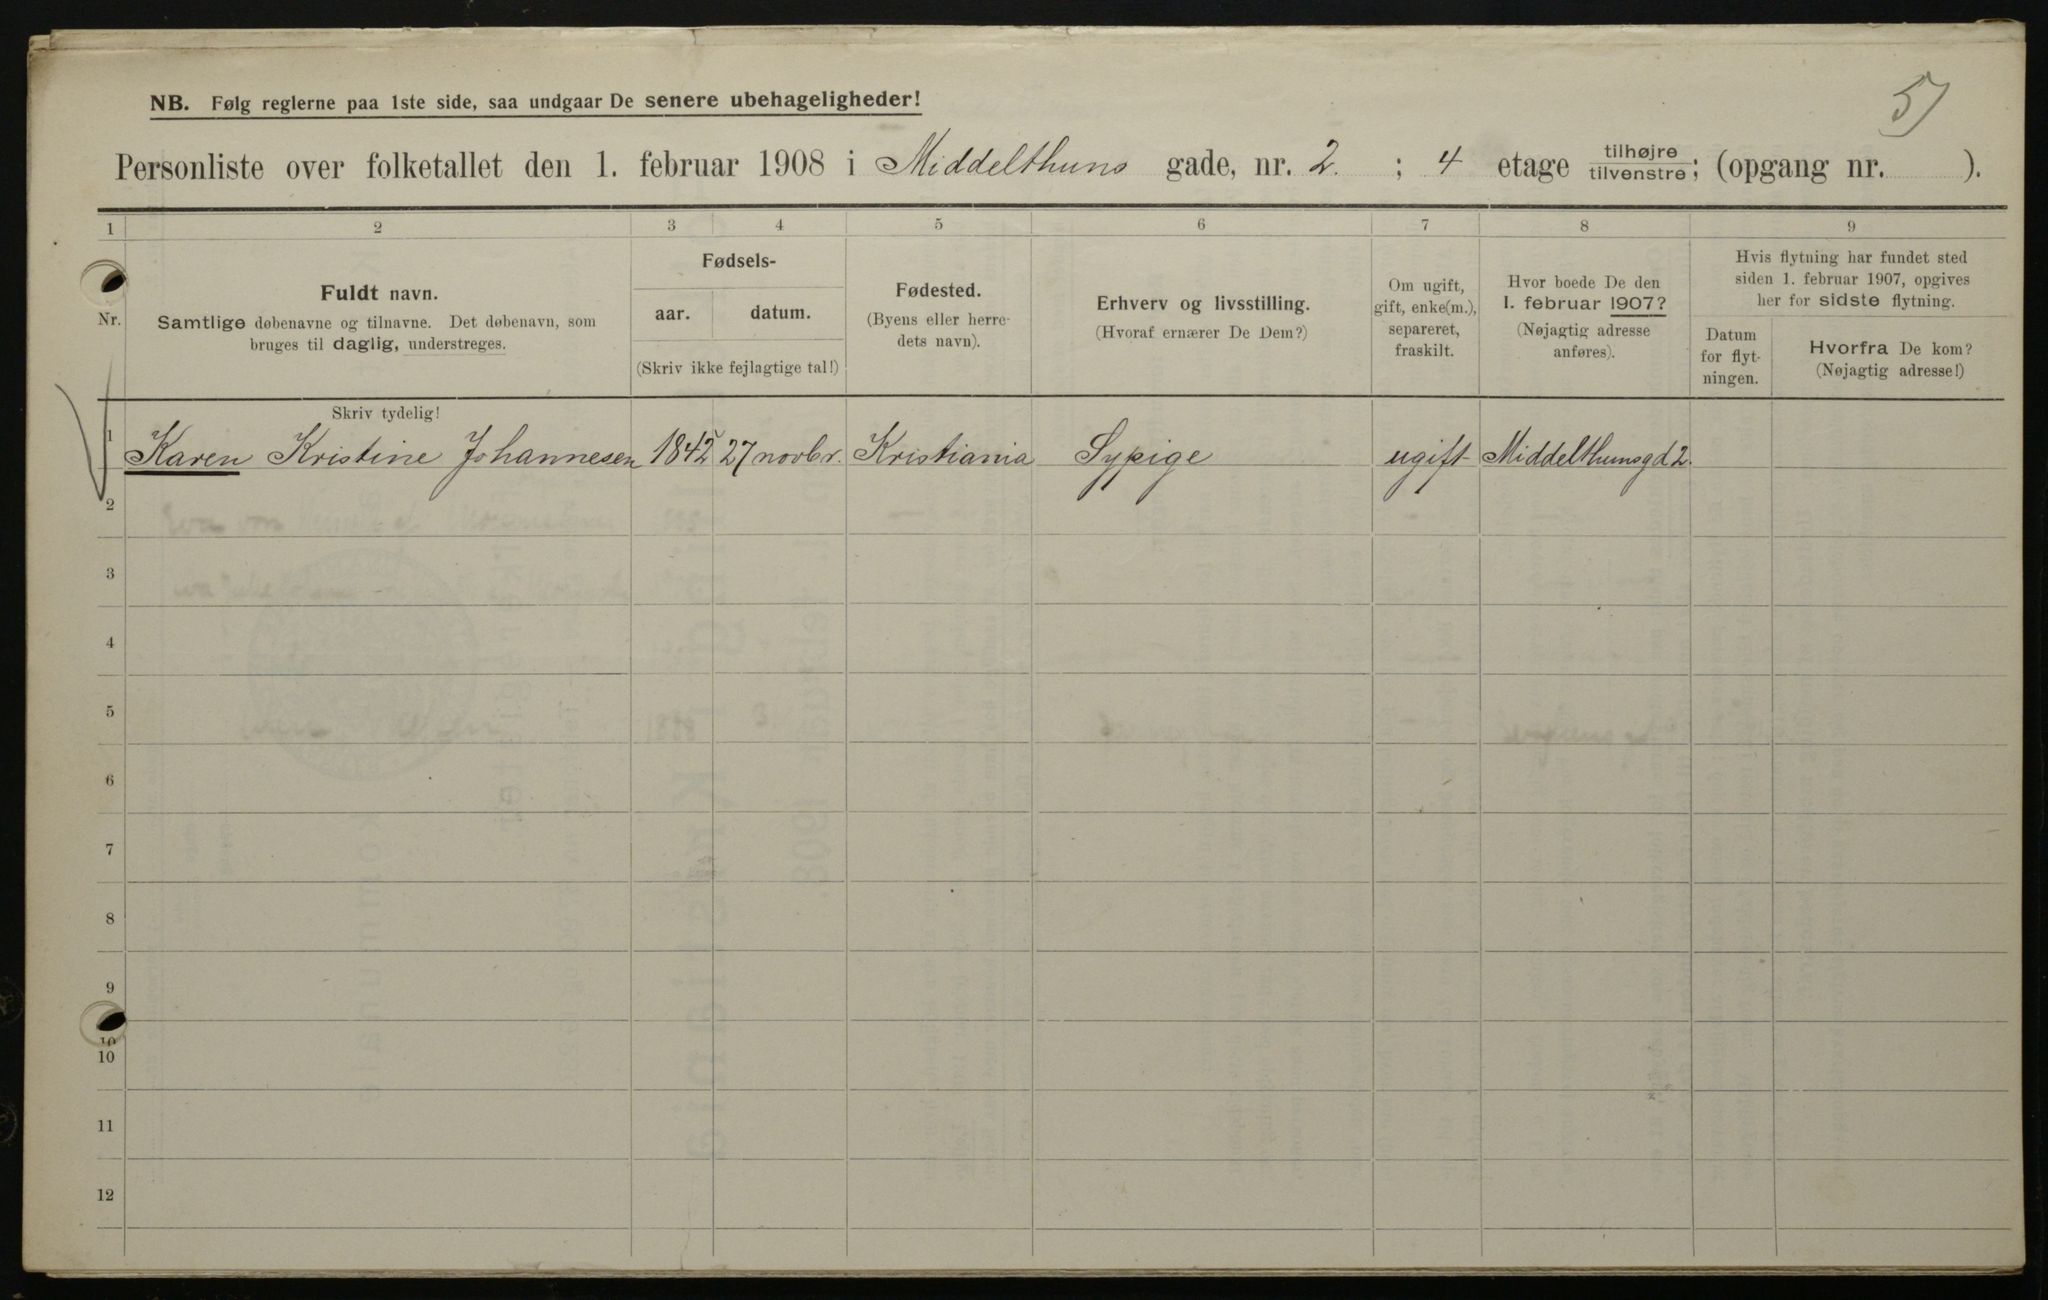 57
NB. Følg reglerne paa 1ste side, saa undgaar De senere ubehageligheder!
Personliste over folketallet den 1. februar 1908 i Middelthuns gade, nr. 2. ; 4 etage tilhøjre tilvenstre; (opgang nr. ).
1 2 3 4 5 6 7 8 9
Nr.
Fuldt navn.
Samtlige døbenavne og tilnavne. Det døbenavn, som
bruges til daglig, understreges.
Fødsels-
aar. datum.
(Skriv ikke fejlagtige tal!)
Fødested.
(Byens eller herre-
dets navn).
Erhverv og livsstilling.
(Hvoraf ernærer De Dem?)
Om ugift,
gift, enke(m.),
separeret,
fraskilt.
Hvor boede De den
1. februar 1907?
(Nøjagtig adresse
anføres).
Hvis flytning har fundet sted
siden 1. februar 1907, opgives
her for sidste flytning.
Datum
for flyt-
ningen.
Hvorfra De kom?
(Nøjagtig adresse!)
Skriv tydelig!
1 Karen Kristine Johannesen 1842 27 novbr. Kristiania Sypige ugift Middelthunsgd 2.
2
3
4
5
6
7
8
9
10
10
11
12